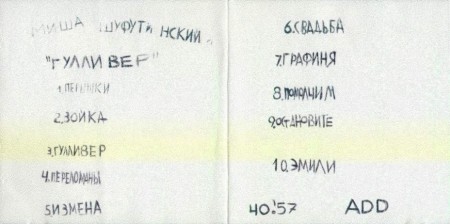 МИША ШУФУТИНСКИЙ
"ГУЛЛИВЕР"
1.
2.ЗОЙКА
3.ГУЛЛИВЕР
4.ПЕРЕЛОМАНЫ
5.ИЗМЕНА
6.СВАДЬБА
7.ГРАФИНЯ
8.ПОМОЛЧИМ
9.ОСТАНОВИТЕ
10.ЭМИЛИ
40:57 ADD